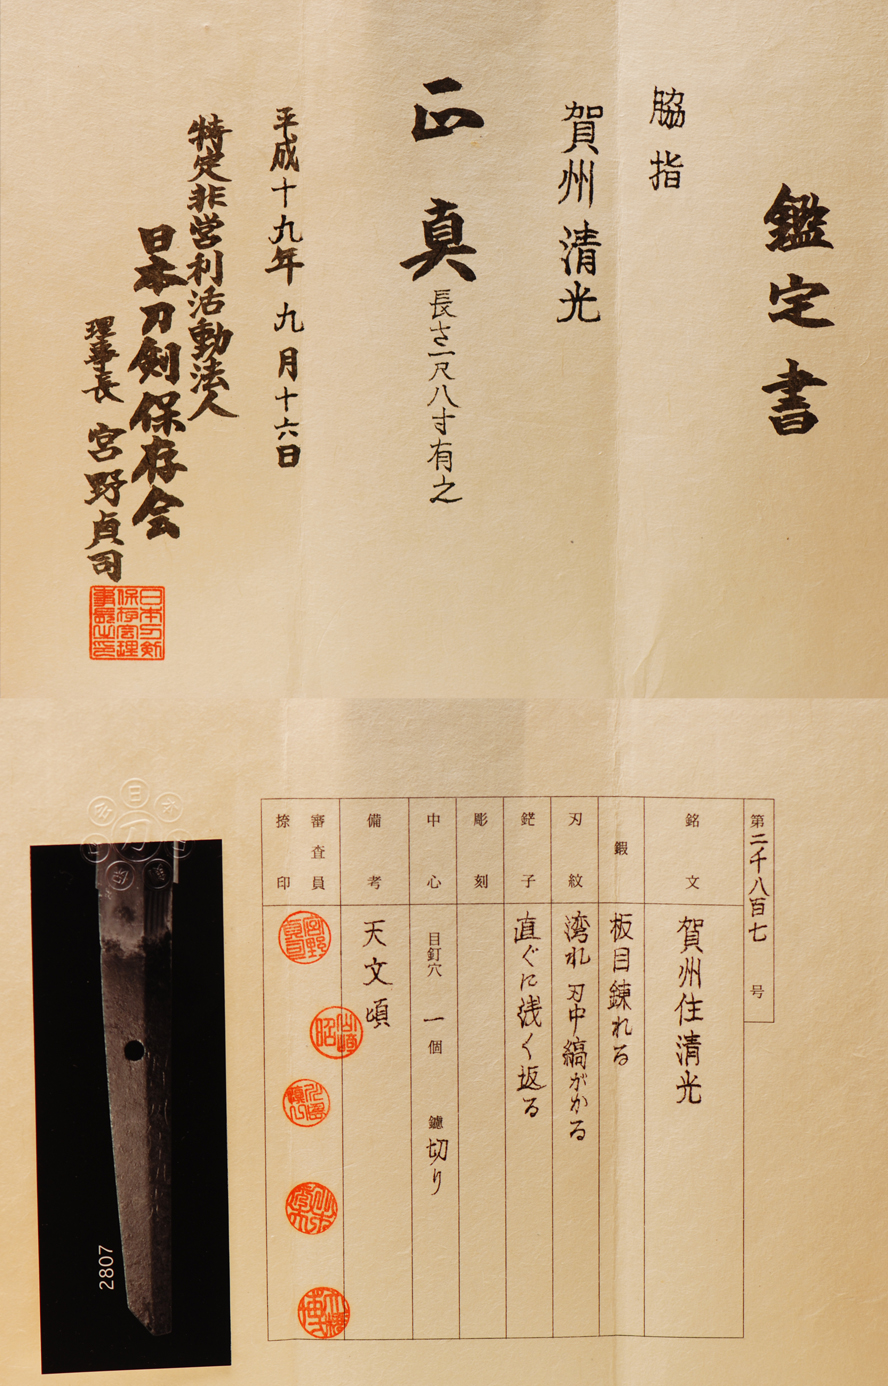 鑑定書
脇指
賀州清光
正真 長さ一尺八寸有之
平成十九年九月十六日
特定非営利活動法人
日本刀剣保存会
理事長 宮野貞司
日本刀剣保存会理事長之印
第二千八百七号
銘文 賀州住清光
鍛 板目錬れる
刃紋 湾れ刃中縞がかる
鋩子 直ぐに浅く返る
彫刻
中心 目釘穴 一個 鑢 切り
備考 天文頃
審査員
捺印
宮野貞司
2807